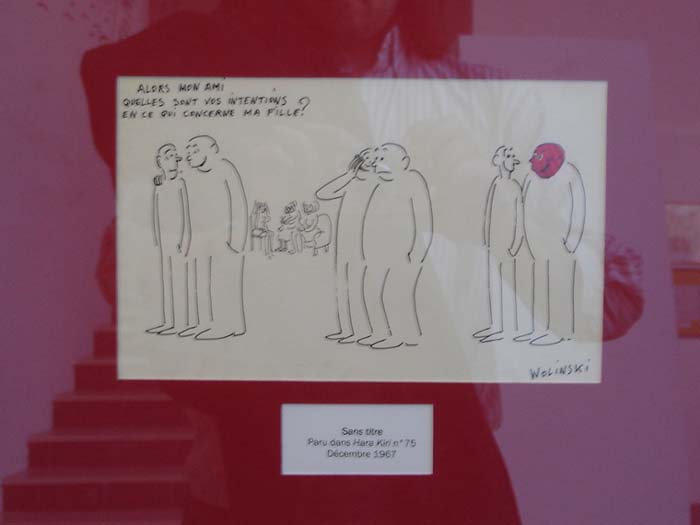 ALORS MON AMI
QUELLES SONT VOS INTENTIONS
EN CE QUI CONCERNE MA FILLE?
WOLINSKI
Sans titre
Paru dans Hara Kiri n°75
Décembre 1967